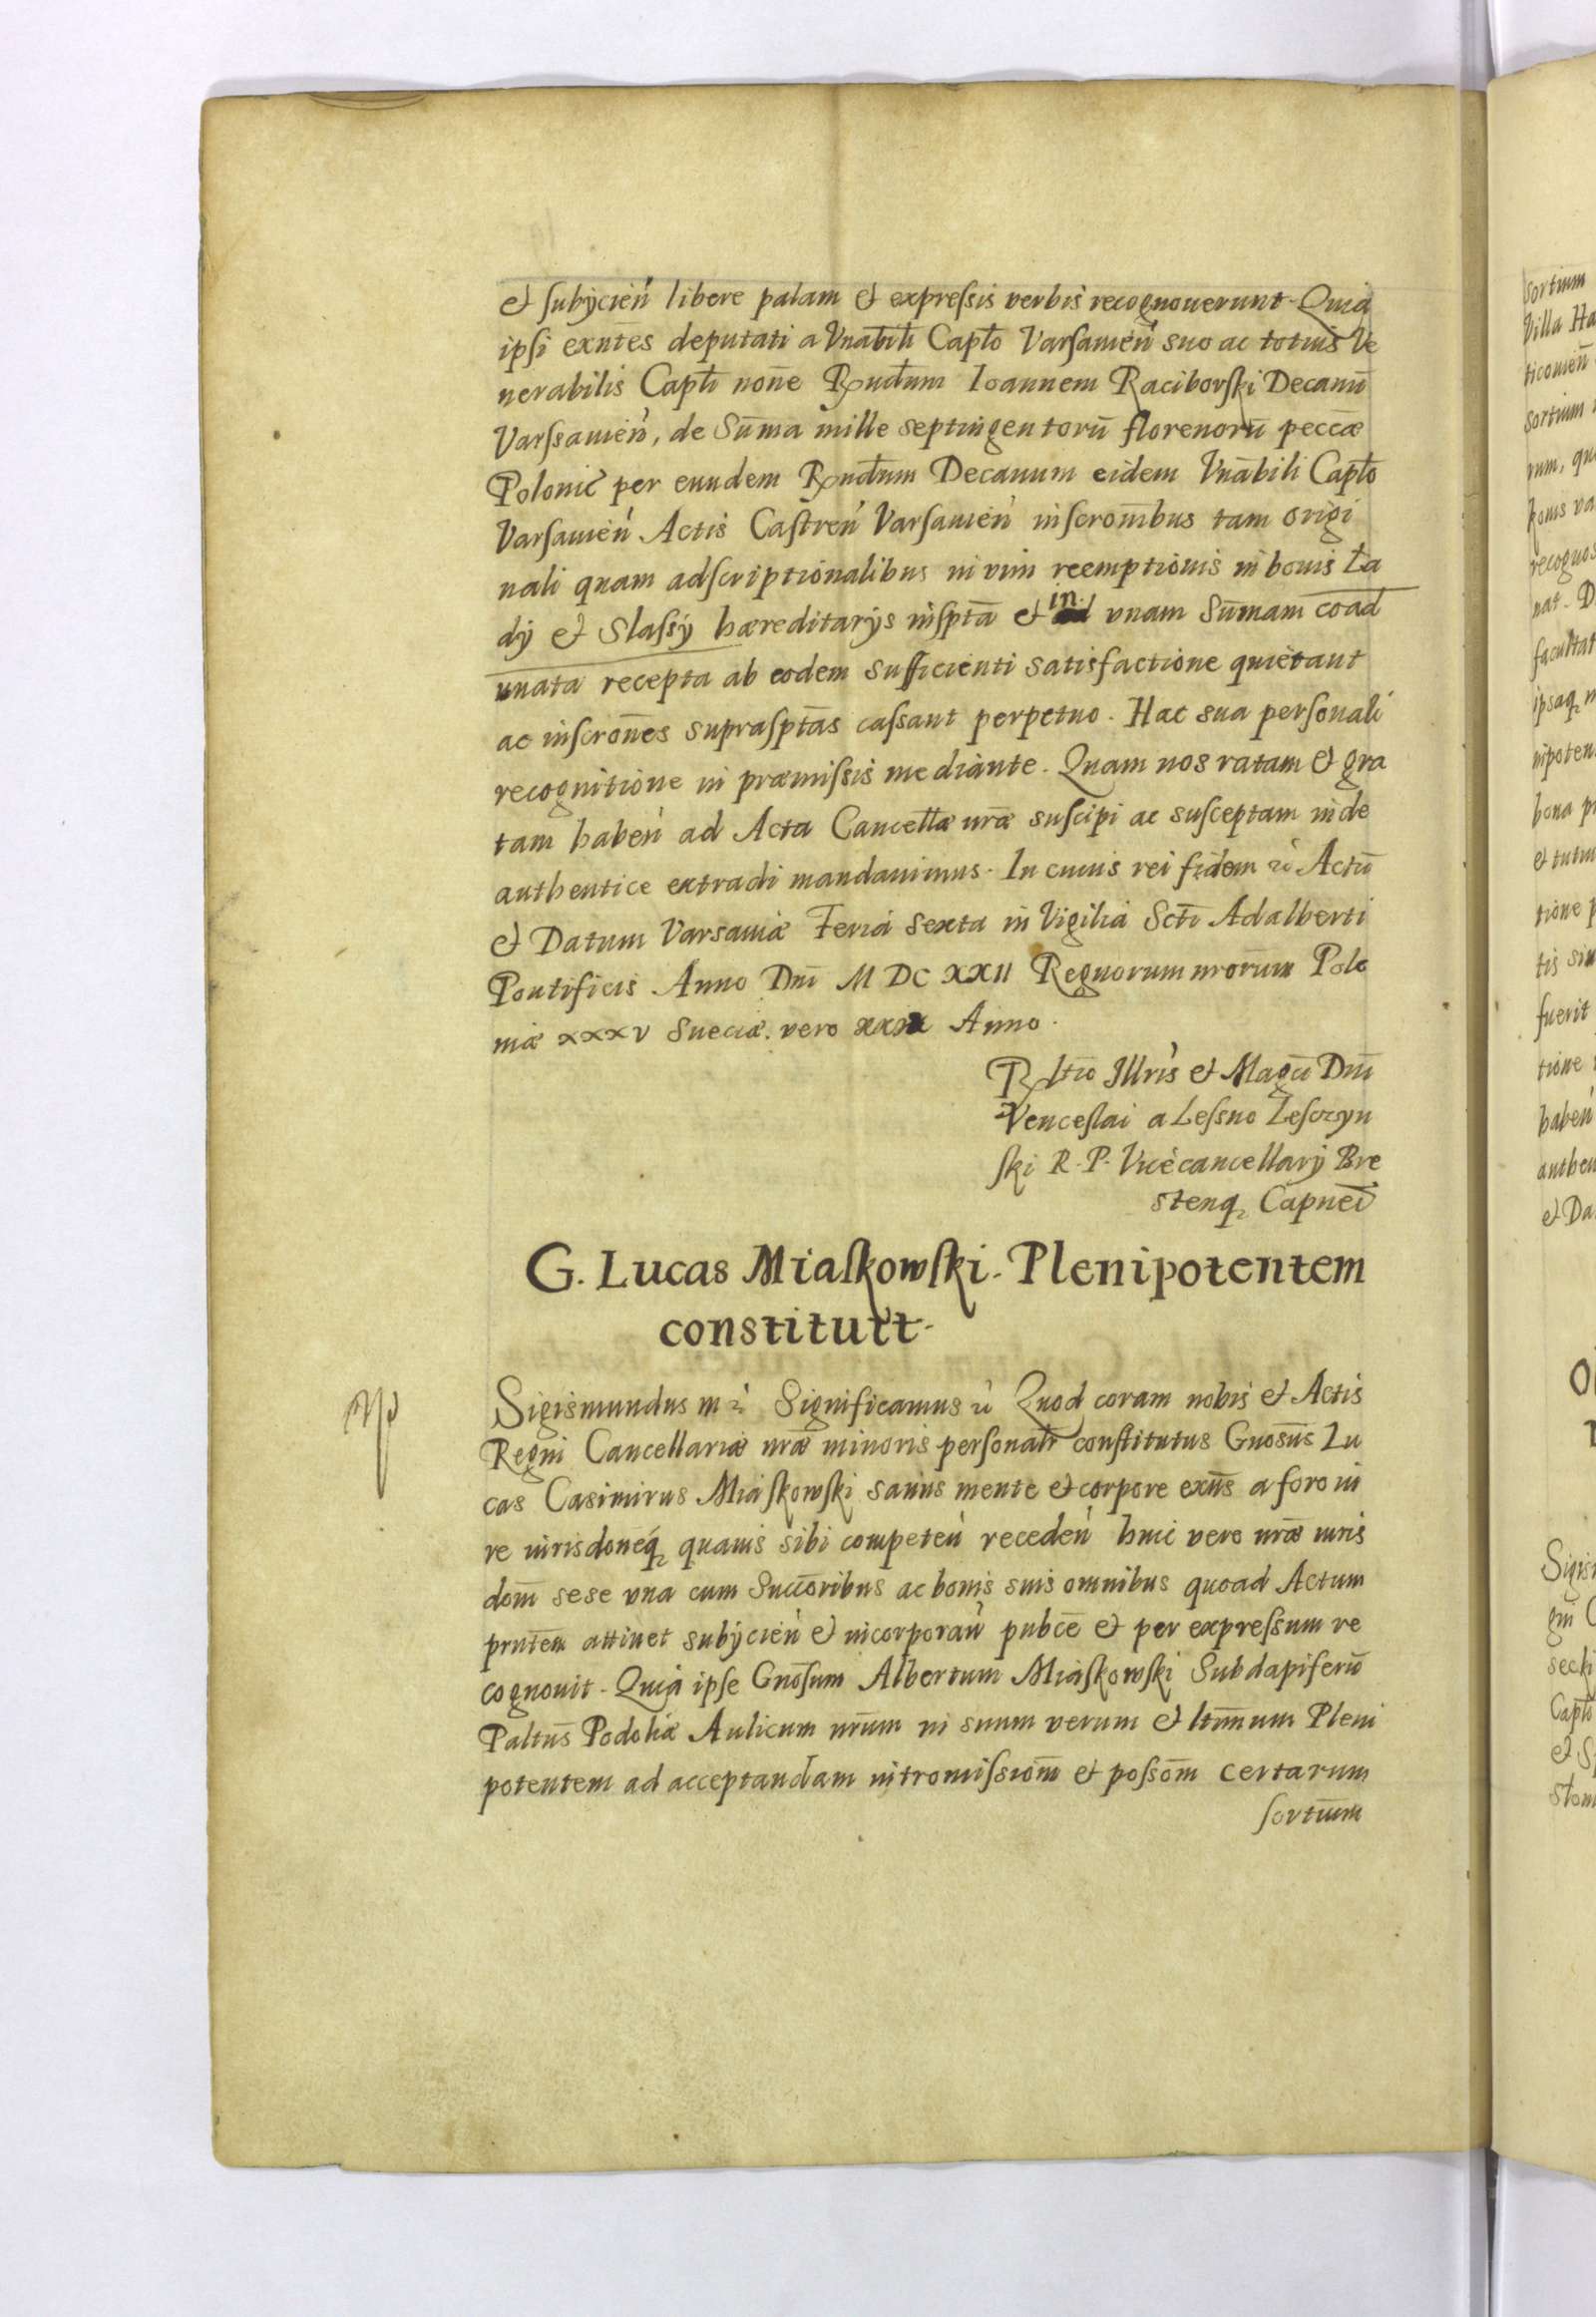 et subÿcień libere palam et expressis verbis recognouerunt. Quia
ipsi exn̄tes deputati a Vnabili Capło Varsauień suo ac totius Ve
nerabilis Capłi noñe Rndum Ioannem Raciborski Decanū
Varssauień, de Sūma mille septingentorū florenorū peccæ
Polonic̃ per eundem Rndum Decanum eidem Vnābili Capło
Varsauień Actis Castreń Varsauień inscrom̄bus tam origi
nali quam adscriptionalibus in vim reemptionis in bonis La
dÿ et Slassÿ hæreditarÿs insptā et in vnam Sūmam coad
unata recepta ab eodem sufficienti satisfactione quietant
ac inscrōnes suprasptās cassant perpetuo. Hac sua personali
recognitione in præmissis mediante. Quam nos ratam et gra
tam habeń ad Acta Cancellæ nræ suscipi ac susceptam inde
authentice extradi mandauimus. In cuius rei fidem ꝛc Actū
et Datum Varsauiæ Feria sexta in Vigilia Scti Adalberti
Pontificis Anno Dn̄i M DC XXII Regnorum nrorum Polo
niæ xxxv Sueciæ. vero xxix Anno.
Rltio Illris et Magci Dn̄i
Venceslai a Lessno Lesczyn
ski R. P. Vicecancellarÿ Bre
stenq₂ Capnei
G. Lucas Miaskowski. Plenipotentem
constituit.
Sigismundus III ꝛc Significamus ꝛc Quod coram nobis et Actis
Regni Cancellariæ nræ minoris personalr constitutus Gnosūs Lu
cas Casimirus Miaskowski sanus mente et corpore exn̄s a foro iu
re iurisdoneq₂ quauis sibi competeń recedeń huic vero nræ iuris
dom̄ sese vna cum Succoribus ac bonis suis omnibus quoad Actum
prn̄tem attinet subÿcień et incorporań pubcē et per expressum re
cognouit. Quia ipse Gnōsum Albertum Miaskowski Subdapiferū
Paltūs Podoliæ Aulicum nrūm in suum verum et ltimum Pleni
potentem ad acceptandam intromissiom̄ et possom̄ certarum
sortium